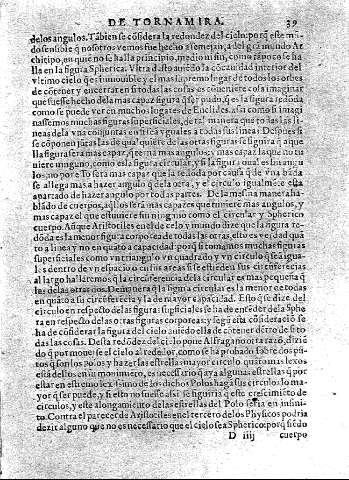 DE TORNAMIRA. 39
delos angulos. Tãbien se cõsidera la redondez del cielo: porq̃ este mũ
do sensible q̃ nosotros vemos fue hecho a semejança del gra mundo Ar
chitipo, en que no se halla principio, medio ni fin, como tãpoco se ha
lla en la figura Spherica. Vltra desto auiẽdo la cõcauidad interior del
vltimo cielo q̃ es el mas supremo lugar de todos los orbes
de cõtener y encerrar en si todas las cosas es conueniente cosa imaginar
que fuesse hecho dela mas capaz figura q̃ ser pudo, q̃ es la figura redõda
como se puede ver en muchos lugares de Euclides. assi como si imagi
nassemos muchas figuras superficiales, de tal manera que todas las li
neas dela vna conjuntas en si seã yguales a todas sus lineas: Despues si
se cõponen juntas las de qualquiere de las otras figuras se figura q̃ aque
lla figura sera mas capaz, que terna mas angulos, y mas capaz la que no tu
uiere ninguno, como es la figura circular, y si la figura qual es sin angu
los: no por esso sera mas capaz que la redõda por causa q̃ de vna
se allega mas a hazer angulo q̃ dela otra, y el circulo igualmẽte esta
apartado de hazer angulo por todas partes. De la mesma manera
blãdo de cuerpos, aq̃llos serã mas capaces que tuuieren mas angulos, y
mas capaz el que estuuiere sin ninguno como el circular y Spherico
cuerpo. Auque Aristoteles en el de celo y mundo dize que la figura re
dõda es la menor figura corporea de todas las otras, esto es verdad quã
to a linea y no en quato a capacidad: porq̃ si tomamos muchas figuras
superficiales como vn triangulo vn quadrado y vn circulo q̃ seã igua
les dentro de vn espacio o circũ areas si se estiẽdẽ sus circunferencias
al largo hallaremos q̃ la circunferencia dela circular es mas pequeña q̃
las delas otras. De manera q̃ la figura circular es la menor de todas
en quãto a su circũferẽcia y la de mayor capacidad. Esto q̃ se dize del
circulo en respecto de las figuras supficiales se ha de enteder de la Sphe
ra en respecto de las otras figuras corporeas: y segũ esta cõsideraciõ se
ha de cõsiderar la figura del cielo auiedo ella de cõtener dẽtro de si to
das las cosas. Desta redõdez del cielo pone Alfragano otra razõ, dizie
do q̃ por mouerse el cielo al rededor, como se ha probado sobre dos pũ
tos q̃ son los polos y hazer las estrellas mayor circulo quãto mas lexos
està destos en su mouimiento, es necessario q̃ aya algunas estrellas q̃ por
estar en estremo lexissimo de los dichos Polos hagã sus circulos lo ma
yor q̃ ser puede, y si esto no fuesse assi se siguiria q̃ este crescimiẽto de
circulos, y este alongamiento delas estrellas del Polo seria en infini
to. Contra el parecer de Aristoteles en el tercero delos Physicos podria
dezir alguno que no es necessario que el cielo sea Spherico: porq̃ siẽdo
D iiij cuerpo